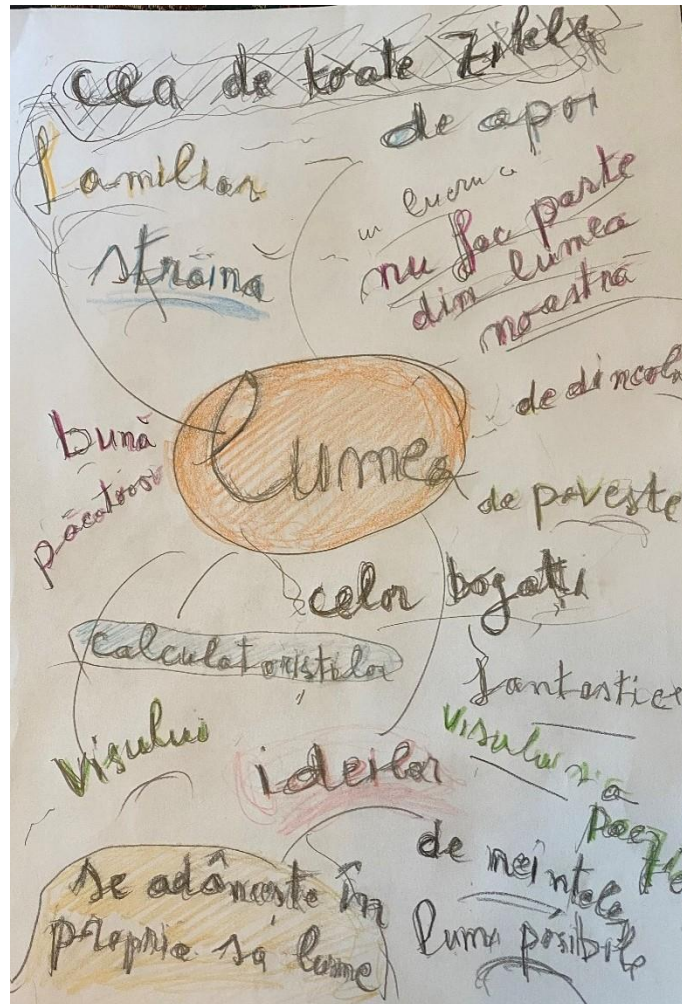 cea de toate zilele
de apoi
familiar
străină
nu fac parte
din lumea
noastră
de dincol
bună
păcătoasă
lumea
de poveste
celor bogați
calculatoristilor
fantastice
visului
visului și a
poez
ideilor
de neînțele
se adâncește în
propria sa lume
lumi posibile